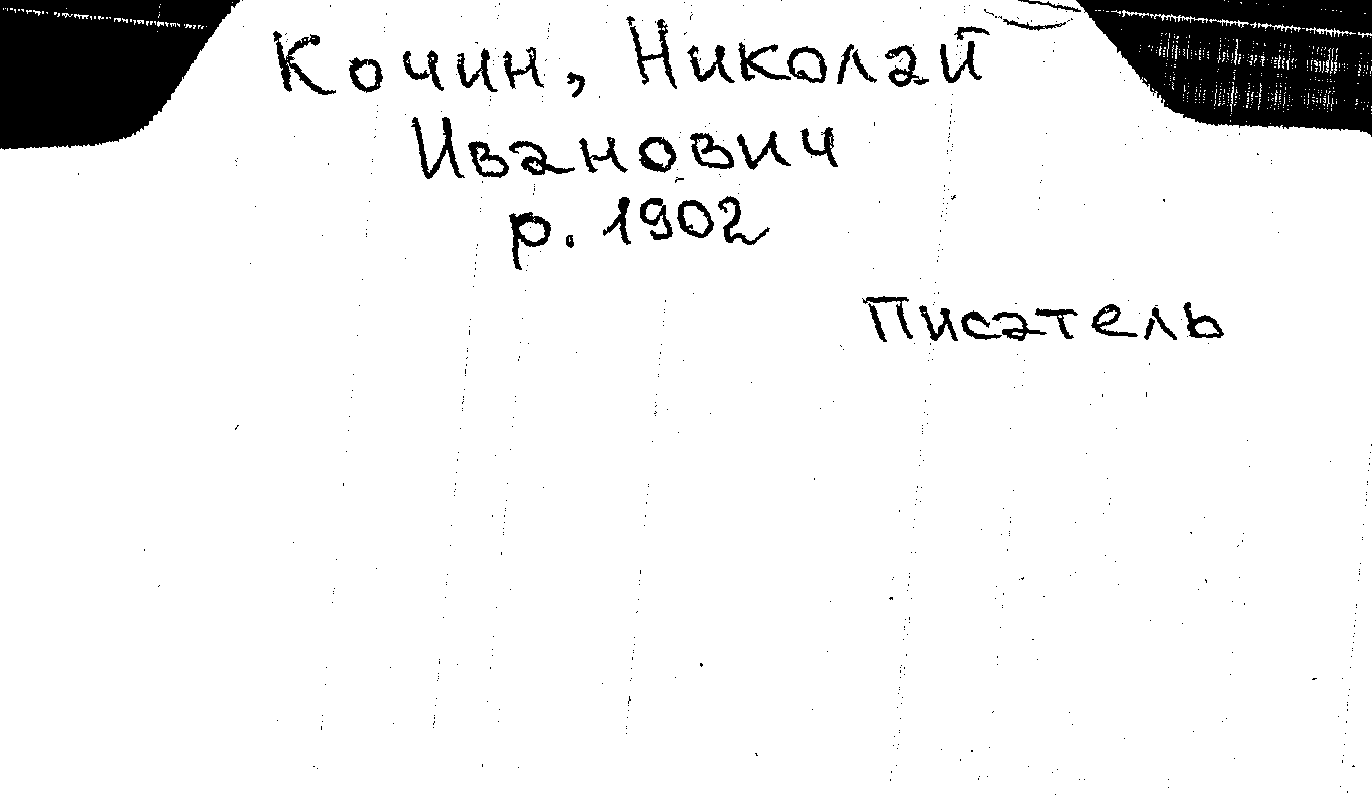 Кочин, Николай
Иванович
р. 1902
Писатель